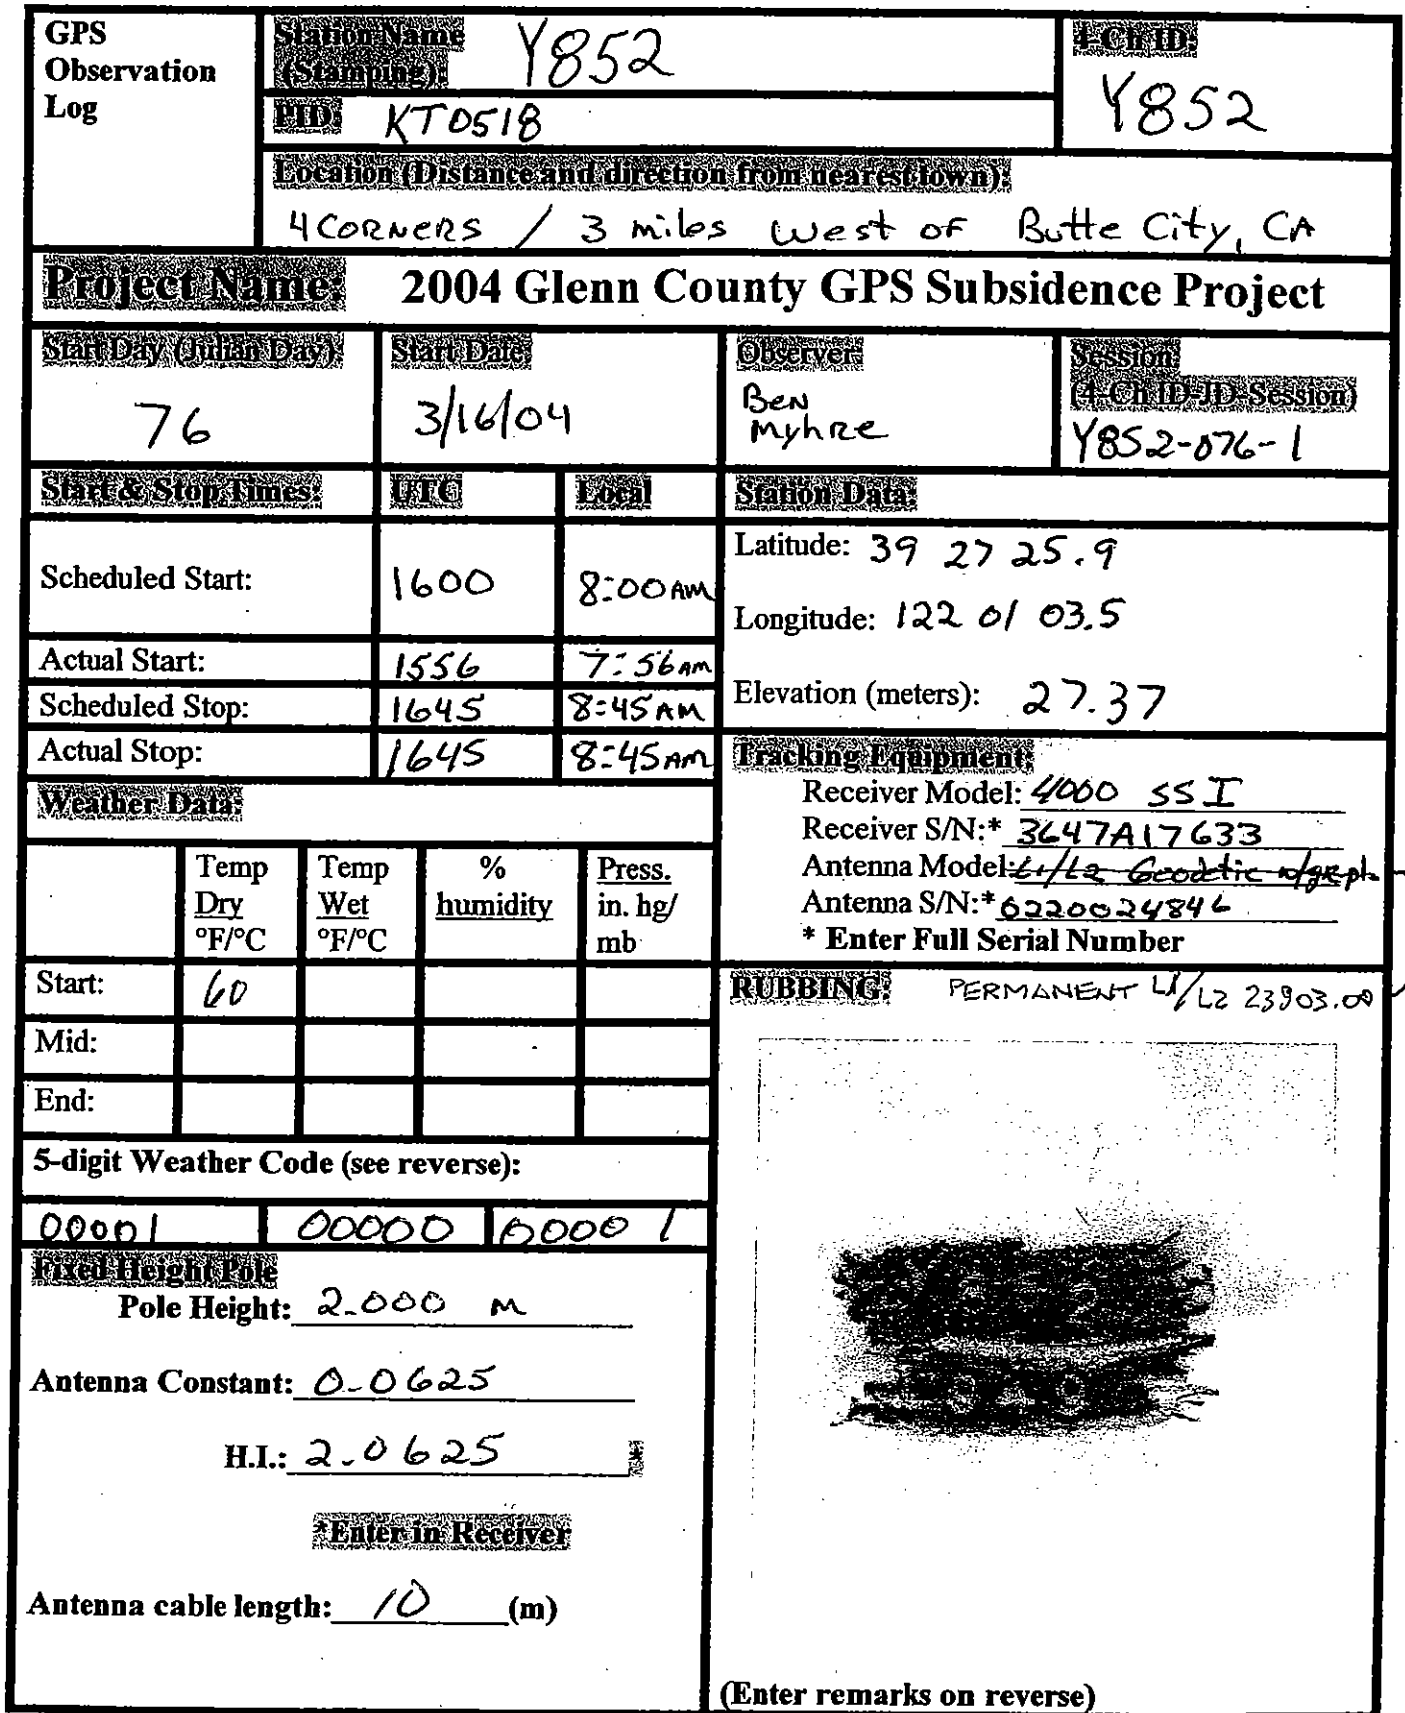 GPS
Observation
Log
Station Name
(Stamping):
Y852
4-Ch ID:
Y852
PID: KT0518
Location (Distance and direction from nearest town):
4 CORNERS / 3 miles west of Butte City, CA
Project Name: 2004 Glenn County GPS Subsidence Project
Start Day (Julian Day):
76
Start Date:
3/16/04
Observer:
Ben
Myhre
Session:
(4-Ch ID-JD-Session)
Y852-076-1
Start & Stop Times: UTC Local
Scheduled Start: 1600 8:00 AM
Actual Start: 1556 7:56 AM
Scheduled Stop: 1645 8:45 AM
Actual Stop: 1645 8:45 AM
Station Data:
Latitude: 39 27 25.9
Longitude: 122 01 03.5
Elevation (meters): 27.37
Tracking Equipment:
Receiver Model: 4000 SSI
Receiver S/N:* 3647A17633
Antenna Model: L1/L2 Geodetic w/gr pl.
Antenna S/N:* 0220024846
* Enter Full Serial Number
Weather Data:
Temp
Dry
°F/°C
Temp
Wet
°F/°C
%
humidity
Press.
in. hg/
mb
Start: 60
Mid:
End:
5-digit Weather Code (see reverse):
00001 00000 00001
Fixed Height Pole
Pole Height: 2.000 m
Antenna Constant: 0.0625
H.I.: 2.0625 *
*Enter in Receiver
Antenna cable length: 10 (m)
RUBBING: PERMANENT L1/L2 23903.00
(Enter remarks on reverse)